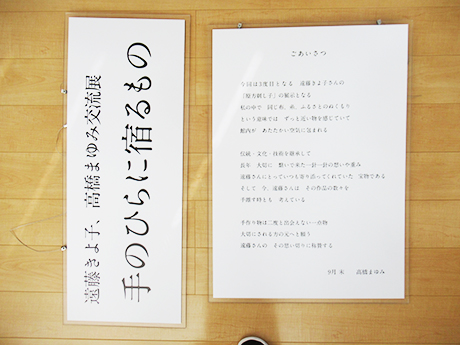 遠藤きよ子、高橋まゆみ交流展
手のひらに宿るもの
ごあいさつ
今回は3度目となる 遠藤きよ子さんの
「原方刺し子」の展示となる
私の中で 同じ糸、布、ふるさとのぬくもり
という意味では ずっと近い物を感じていて
館内が あたたかい空気に包まれる
伝統・文化・技術を継承して
長年 大切に 繋いで来た一針一針の想いや重み
遠藤さんにとっていつも寄り添ってくれていた 宝物である
そして 今、遠藤さんは その作品の数々を
手離す時とも 考えている
手作り物は二度と出会えない一点物
大切にされる方の元へと願う
遠藤さんの その思い切りに称賛する
9月 末 高橋まゆみ